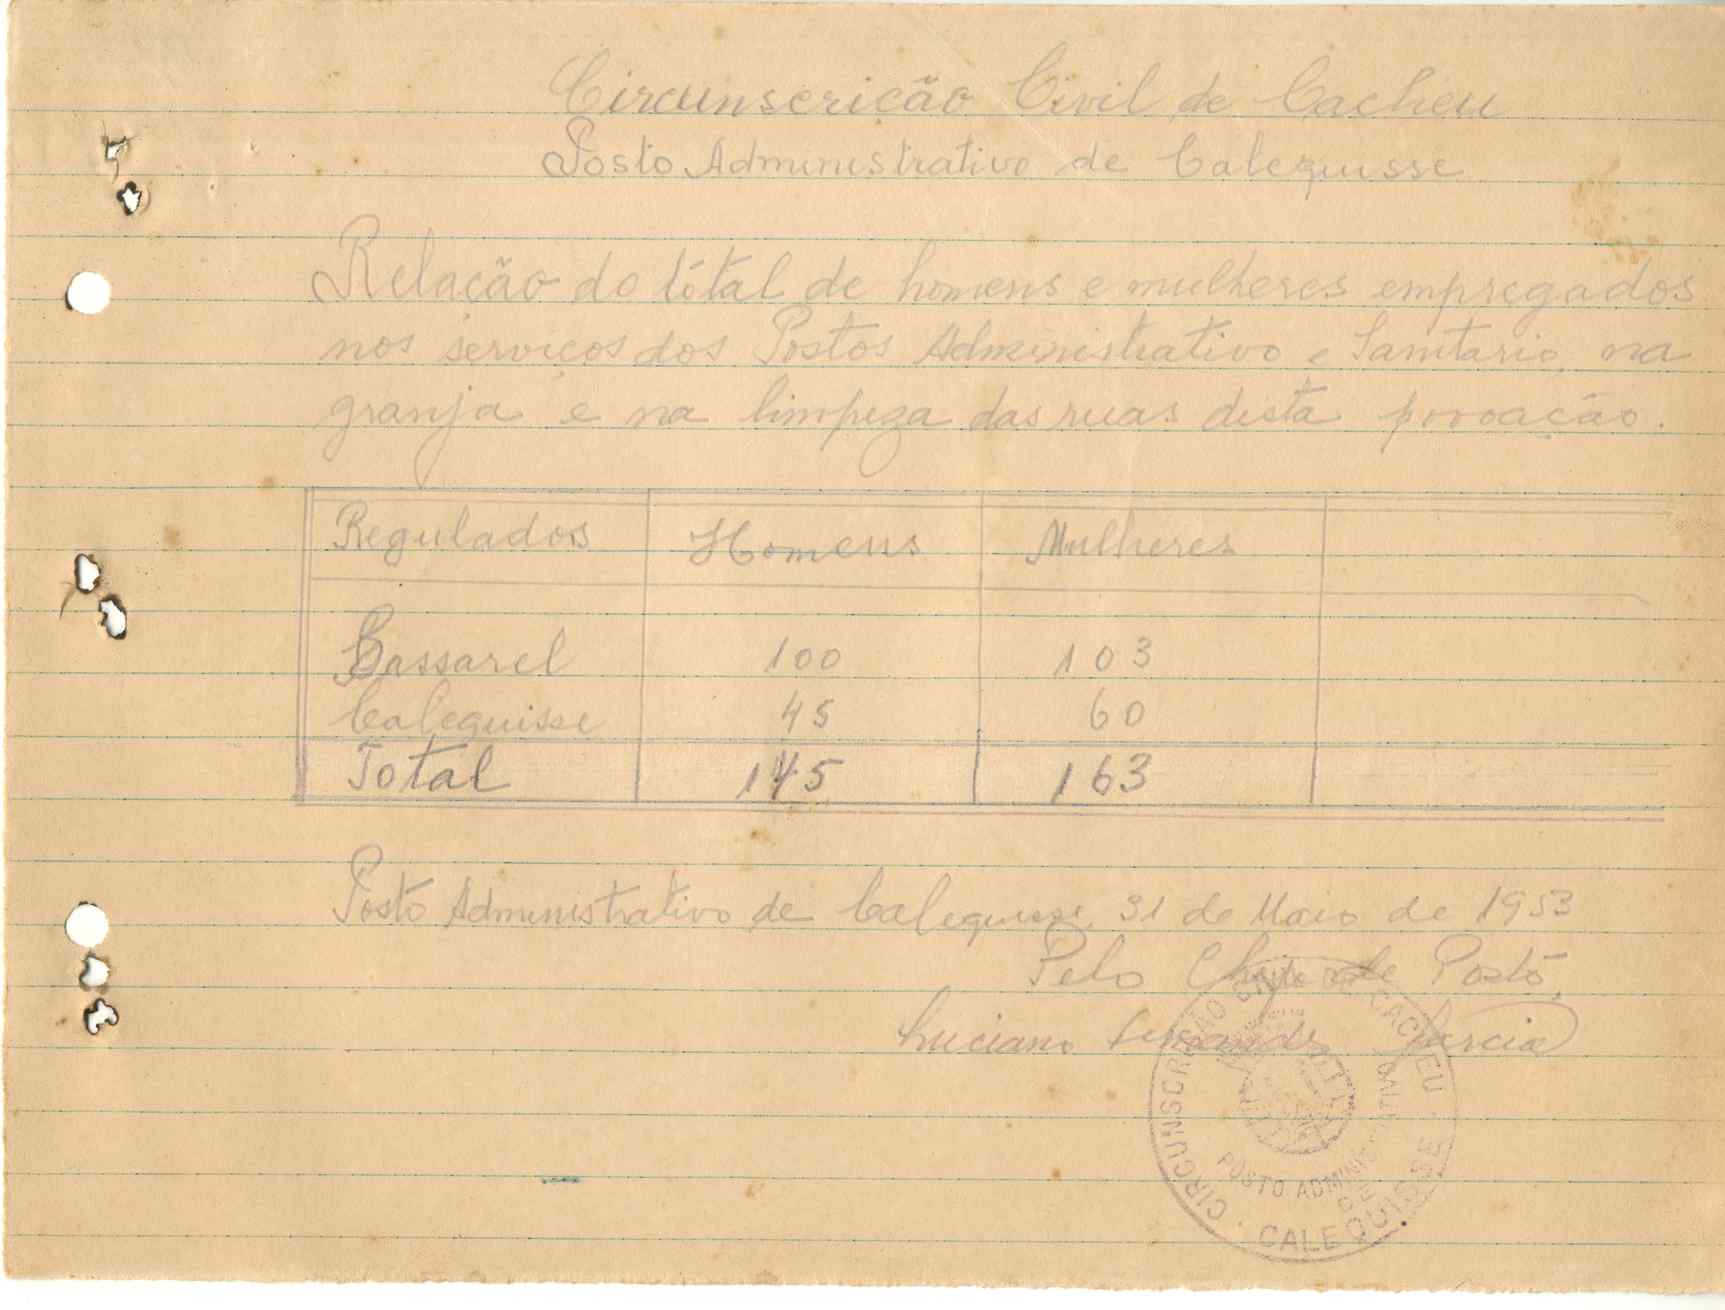 Circunscrição Civil de Cacheu
Posto Administrativo de Calequisse
Relação do tótal de homens e mulheres empregados
nos serviços dos Postos Administrativo e Sanitario, na
granja e na limpeza das ruas desta povoação.
Regulados Homens Mulheres
Bassarel 100 103
Calequisse 45 60
Total 145 163
Posto Administrativo de Calequisse, 31 de Maio de 1953
Pelo Chefe de Posto,
Luciano Fernandes Garcia
CIRCUNSCRIÇÃO CIVIL DE CACHEU
POSTO ADMINISTRATIVO
CALEQUISSE